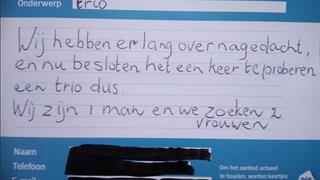 Onderwerp trio
Wij hebben er lang over nagedacht,
en nu besloten het een keer te proberen
een trio dus.
Wij zijn 1 man en we zoeken 2
vrouwen
Naam
Telefoon
E-mail
Om het aanbod actueel
te houden, worden kaartjes